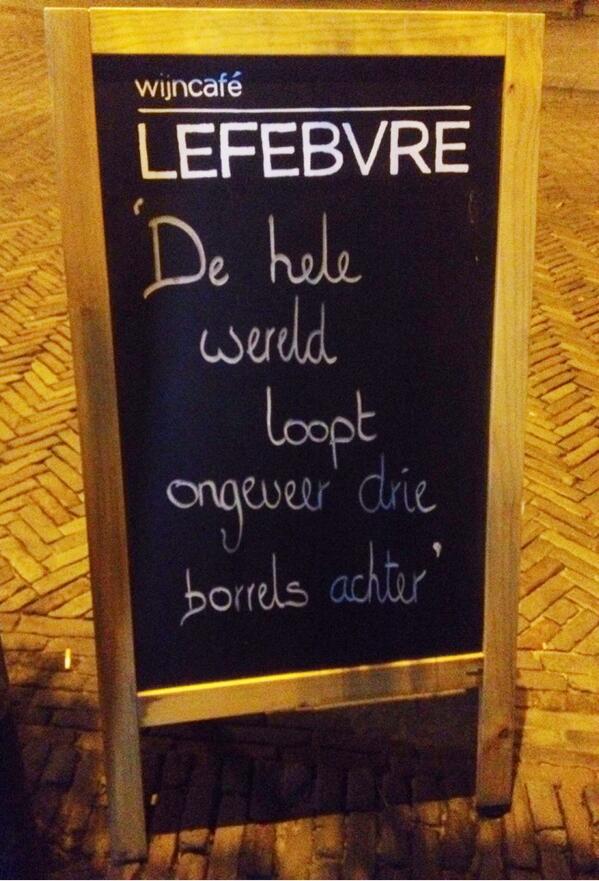 wijncafé
LEFEBVRE
'De hele
wereld
loopt
ongeveer drie
borrels achter'